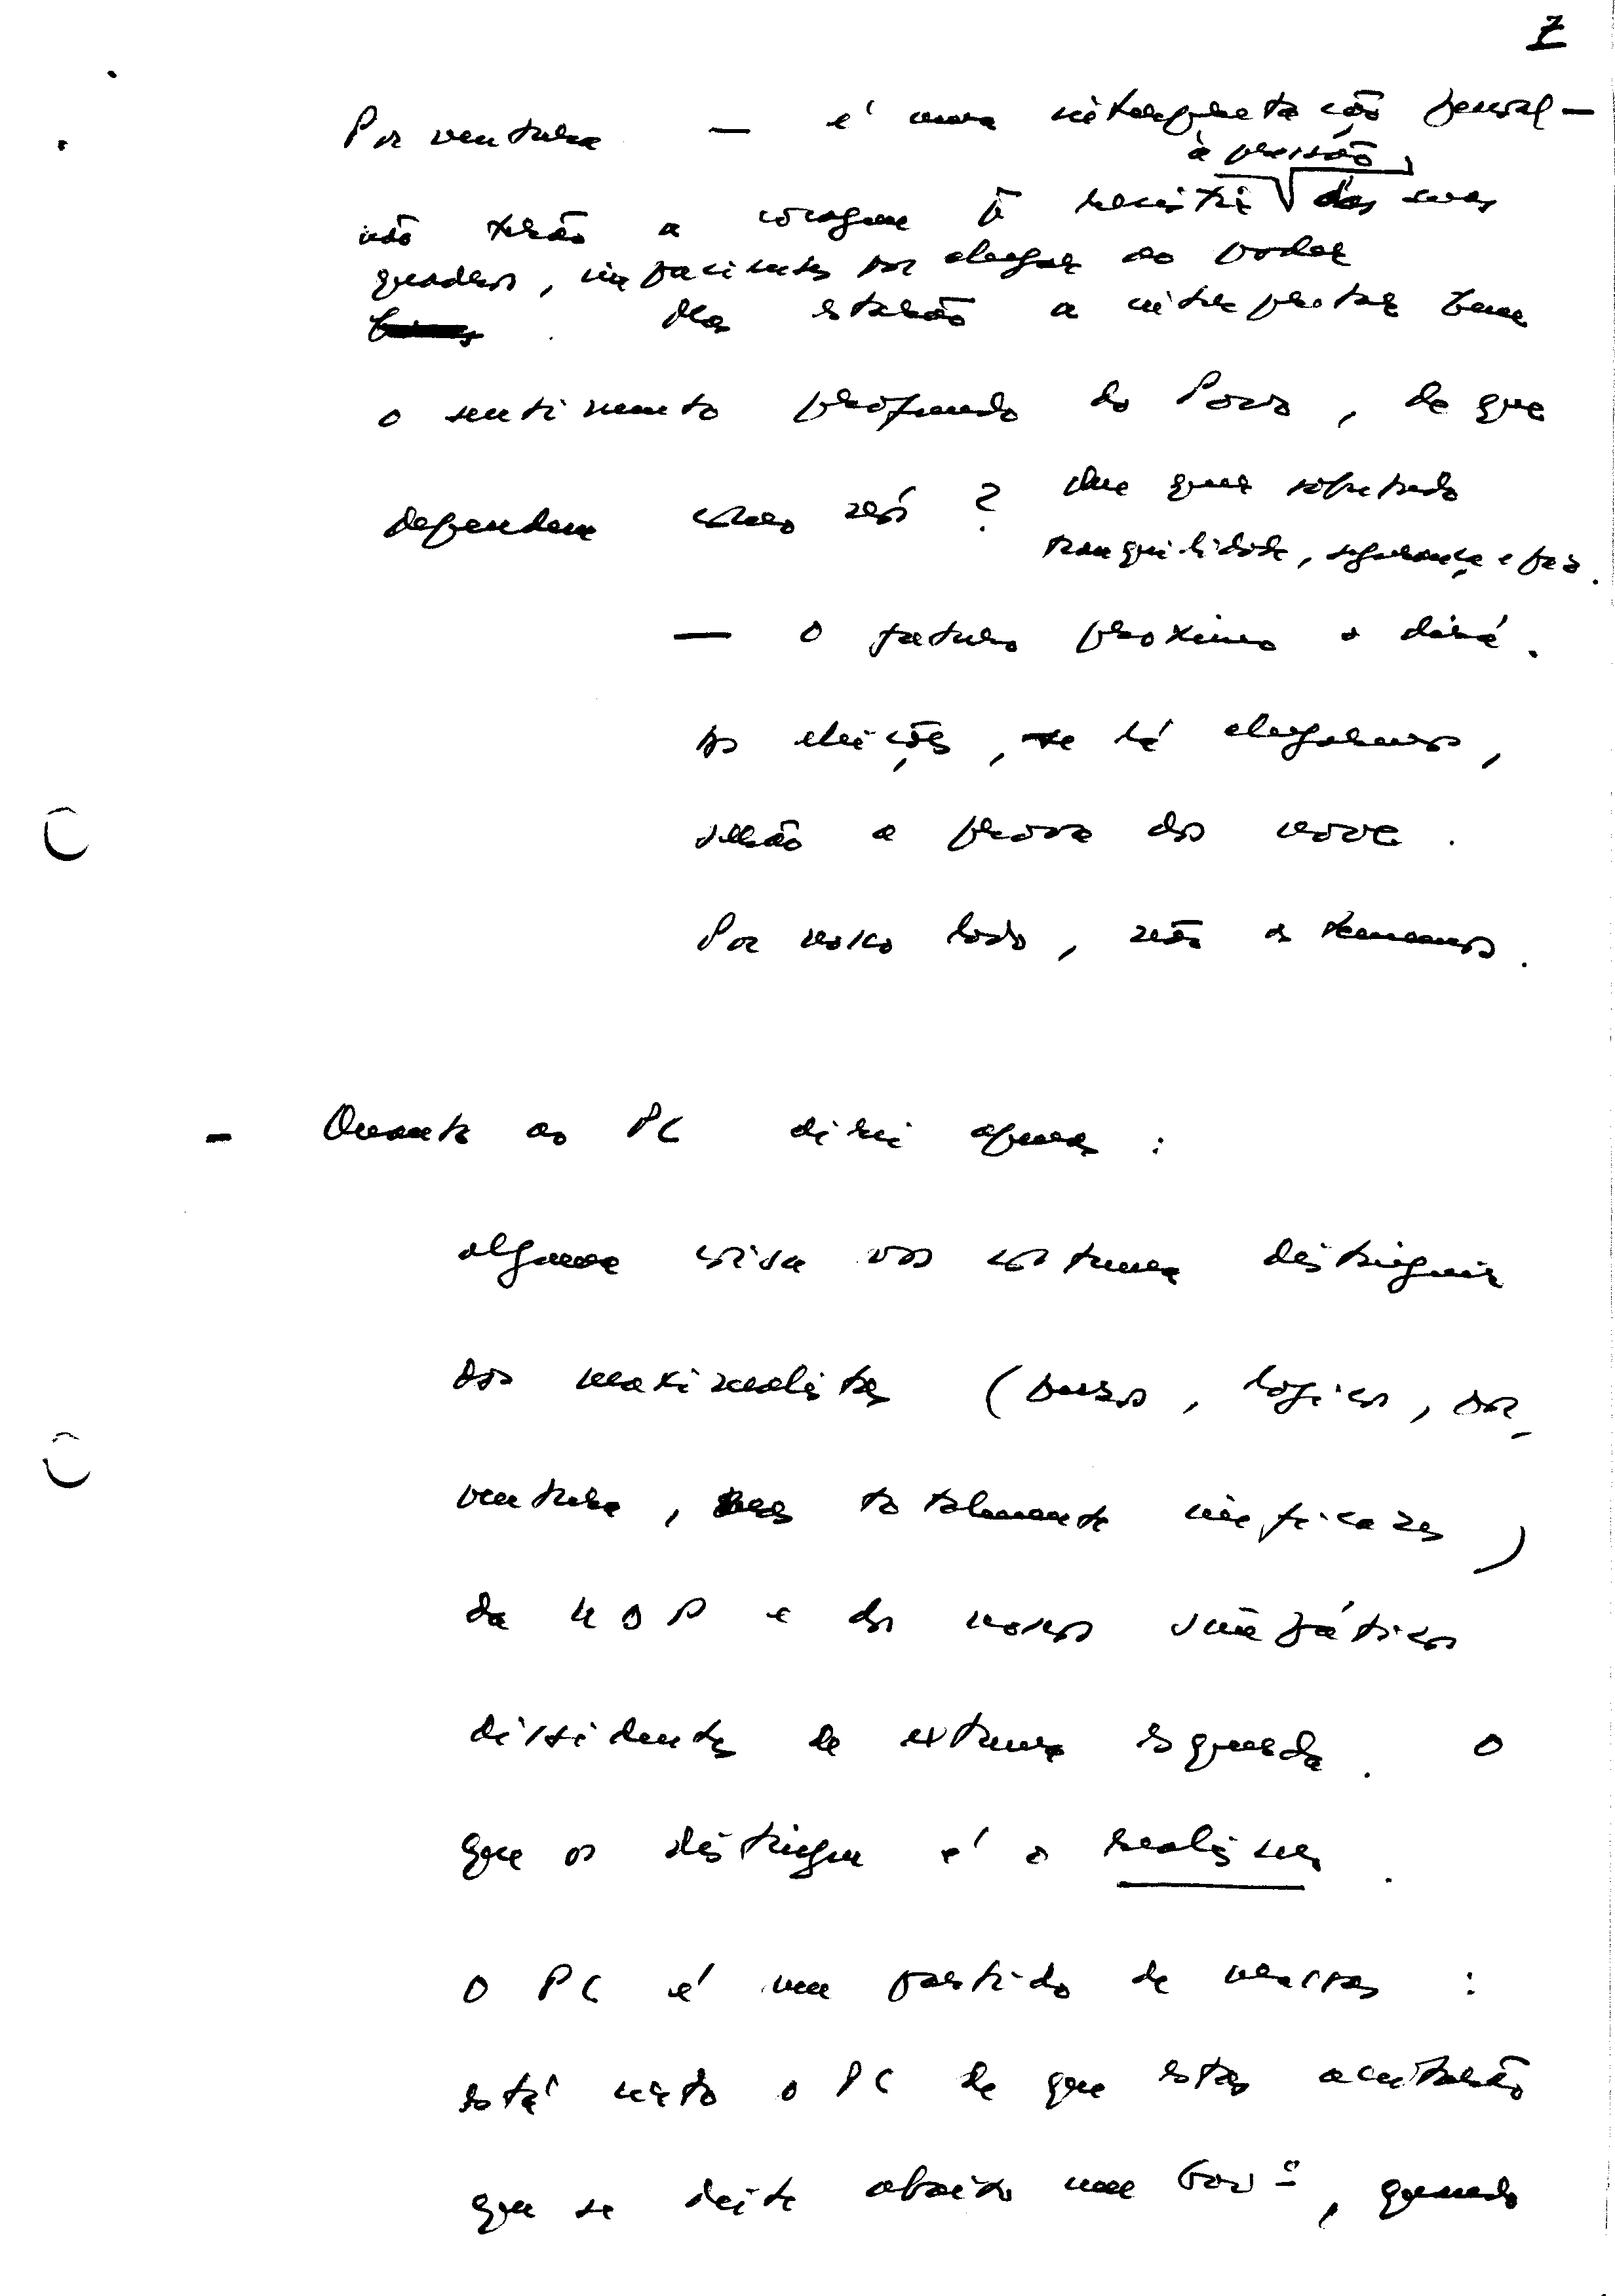 7
Porventura — é uma interpretação pessoal —
à pressão
não terão a coragem de resistir das suas
quadros, impacientes por chegar ao poder
. Mas estarão a interpretar bem
o sentimento profundo do Povo, de que
dependem como nós? Que quer sobretudo
tranquilidade, segurança e paz.
— O futuro próximo o dirá.
As eleições, se lá chegarmos,
serão a prova dos nove.
Por nosso lado, não as tememos.
- Quanto ao PC direi apenas:
alguma coisa os costuma distinguir
dos maximalistas (puros, lógicos, por-
ventura, mas totalmente ineficazes)
da UDP e dos nossos simpáticos
dissidentes de extrema esquerda. O
que os distingue é o realismo.
O PC é um partido de massas:
está certo o PC de que estas aceitarão
que se deite abaixo um Govº, quando